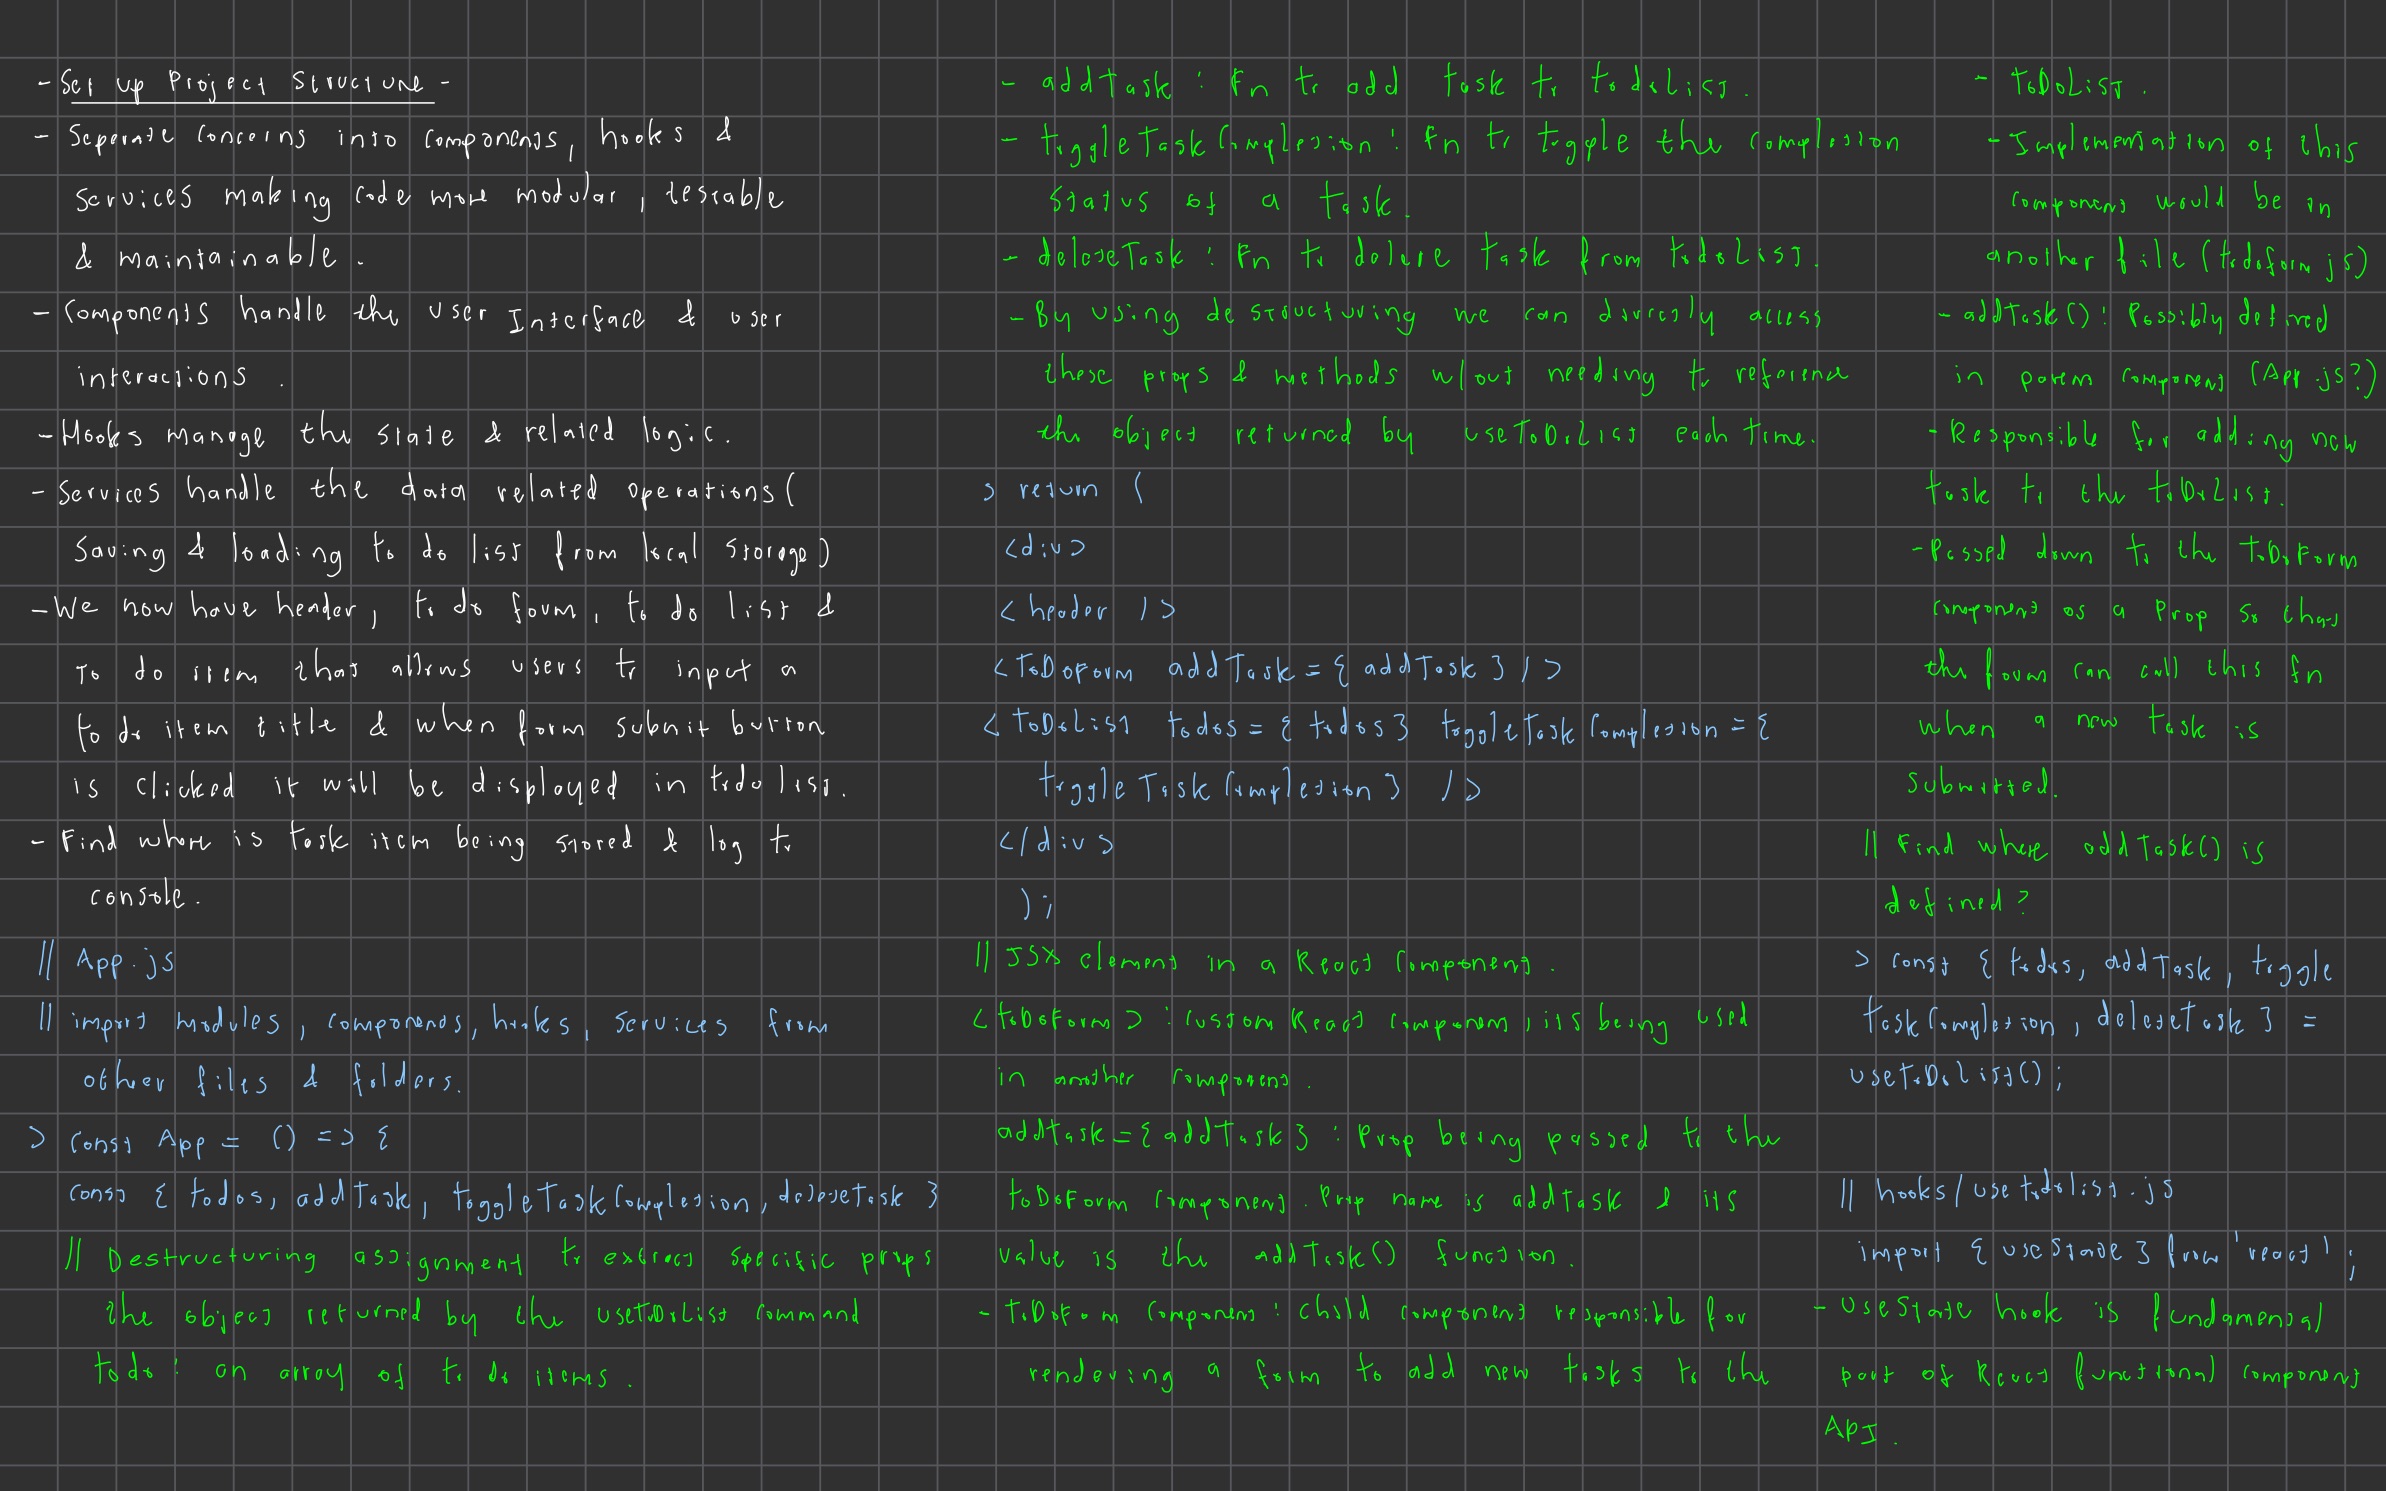 - Set up Project Structure -
- Seperate concerns into components, hooks &
services making code more modular, testable
& maintainable.
- Components handle the user Interface & user
interactions.
- Hooks manage the state & related logic.
- Services handle the data related operations (
saving & loading to do list from local storage)
- We now have header, to do form, to do list &
To do item that allows users to input a
to do item title & when form submit button
is clicked it will be displayed in todo list.
- Find where is task item being stored & log to
console.
// App.js
// import modules, components, hooks, services from
other files & folders.
> const App = () => {
const { todos, addTask, toggleTaskCompletion, deleteTask }
// Destructuring assignment to extract specific props
the object returned by the useToDoList command
todo : an array of to do items.
- addTask : Fn to add task to todoList.
- toggleTaskCompletion : Fn to toggle the completion
status of a task.
- deleteTask : Fn to delete task from todoList.
- By using destructuring we can directly access
these props & methods w/out needing to reference
the object returned by useToDoList each time.
> return (
<div>
<header />
<ToDoForm addTask = { addTask } />
<ToDoList todos = { todos } toggleTaskCompletion = {
toggleTaskCompletion } />
</div>
);
// JSX element in a React Component.
<ToDoForm> : Custom React component, its being used
in another component.
addTask = { addTask } : Prop being passed to the
ToDoForm component. Prop name is addTask & its
value is the addTask() function.
- ToDoForm Component : Child component responsible for
rendering a form to add new tasks to the
- ToDoList.
- Implementation of this
component would be in
another file (todoform.js)
- addTask() : Possibly defined
in parent component (App.js?)
- Responsible for adding new
task to the toDoList.
- Passed down to the ToDoForm
component as a Prop so that
the form can call this fn
when a new task is
submitted.
// Find where addTask() is
defined?
> const { todos, addTask, toggle
taskCompletion, deleteTask } =
useToDoList();
// hooks/usetodolist.js
import { useState } from 'react';
- UseState hook is fundamental
part of React functional component
API.